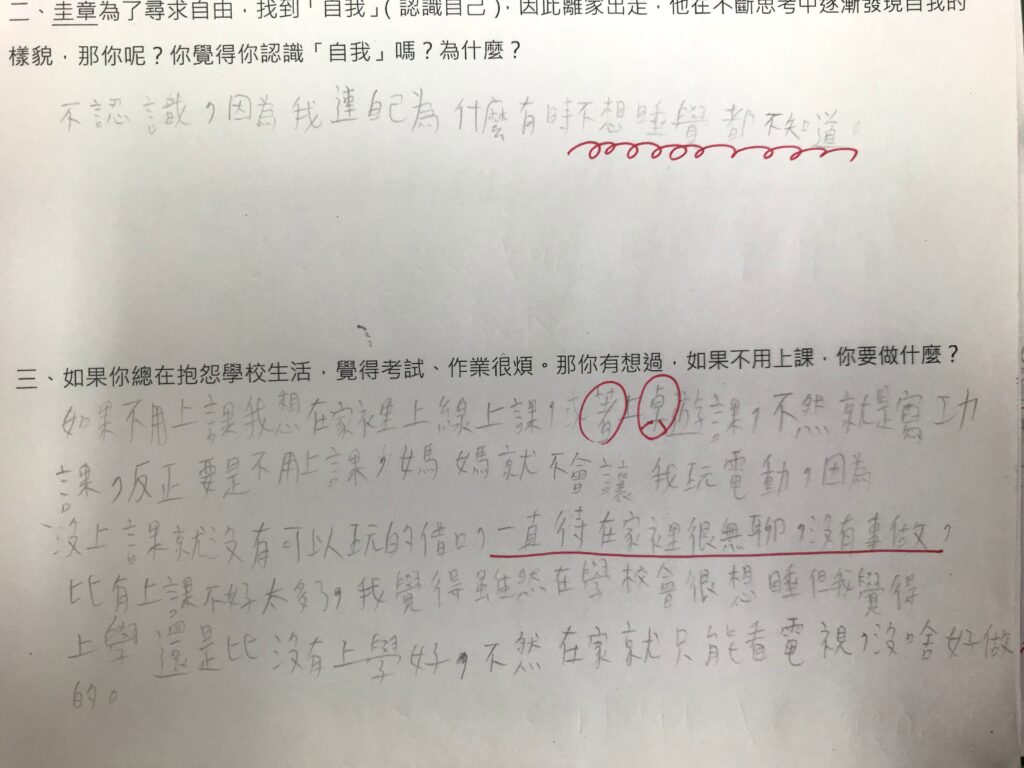 二、圭章為了尋求自由，找到「自我」(認識自己)，因此離家出走，他在不斷思考中逐漸發現自我的
樣貌，那你呢？你覺得你認識「自我」嗎？為什麼？
不認識，因為我連自己為什麼有時不想睡覺都不知道。
三、如果你總在抱怨學校生活，覺得考試、作業很煩。那你有想過，如果不用上課，你要做什麼？
如果不用上課我想在家裡上線上課，或著上桌遊課，不然就是寫功
課，反正要是不用上課，媽媽就不會讓我玩電動，因為
沒上課就沒有可以玩的借口，一直待在家裡很無聊，沒有事做，
比有上課不好太多了，我覺得雖然在學校會很想睡但我覺得
上學還是比沒有上學好，不然在家就只能看電視，沒啥好做
的。